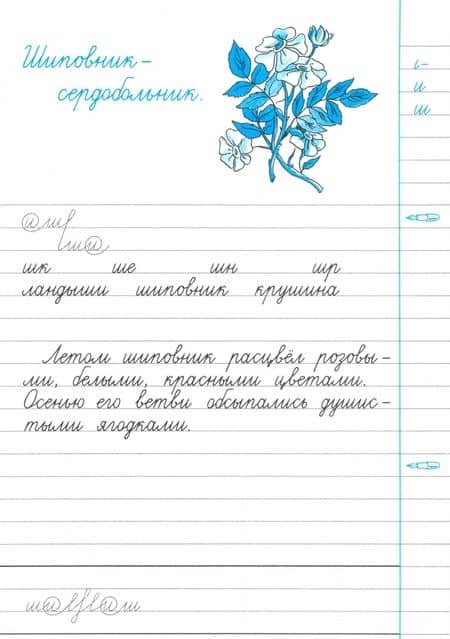 Шиповник –
сердобольник.
и
ш
шк ше шн шр
ландыши шиповник крушина
Летом шиповник расцвёл розовы–
ми, белыми, красными цветами.
Осенью его ветви обсыпались душис–
тыми ягодками.